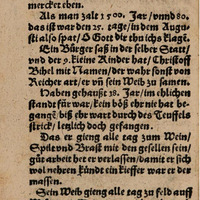 mercket eben.
Als man zalt 1500. Jar/ vnnd 80.
das ist war den 25. tage/ in dem Augu-
sti also spat/ O Gott dir thu ichs klagē.
Ein Bürger saß in der selber Statt/
vnd der 9. kleine Kinder hat/ Christoff
Bihel mit Namen/ der wahr sonst von
Reicher art/ er vñ sein Weib zu samen.
Haben gehauset 18. Jar/ im ehlichen
standt für war/ kein böß ehr nie hat be-
gangē/ biß ehr wart durch des Teuffels
strick/ letzlich doch gefangen.
Das er gieng alle tag zum Wein/
Spilt vnd Braßt mit den gesellen sein/
gůt arbeit hat er verlassen/ damit er sich
wol nehren künd ein kieffer war er der
massen.
Sein Weib gieng alle tag zu feld auff